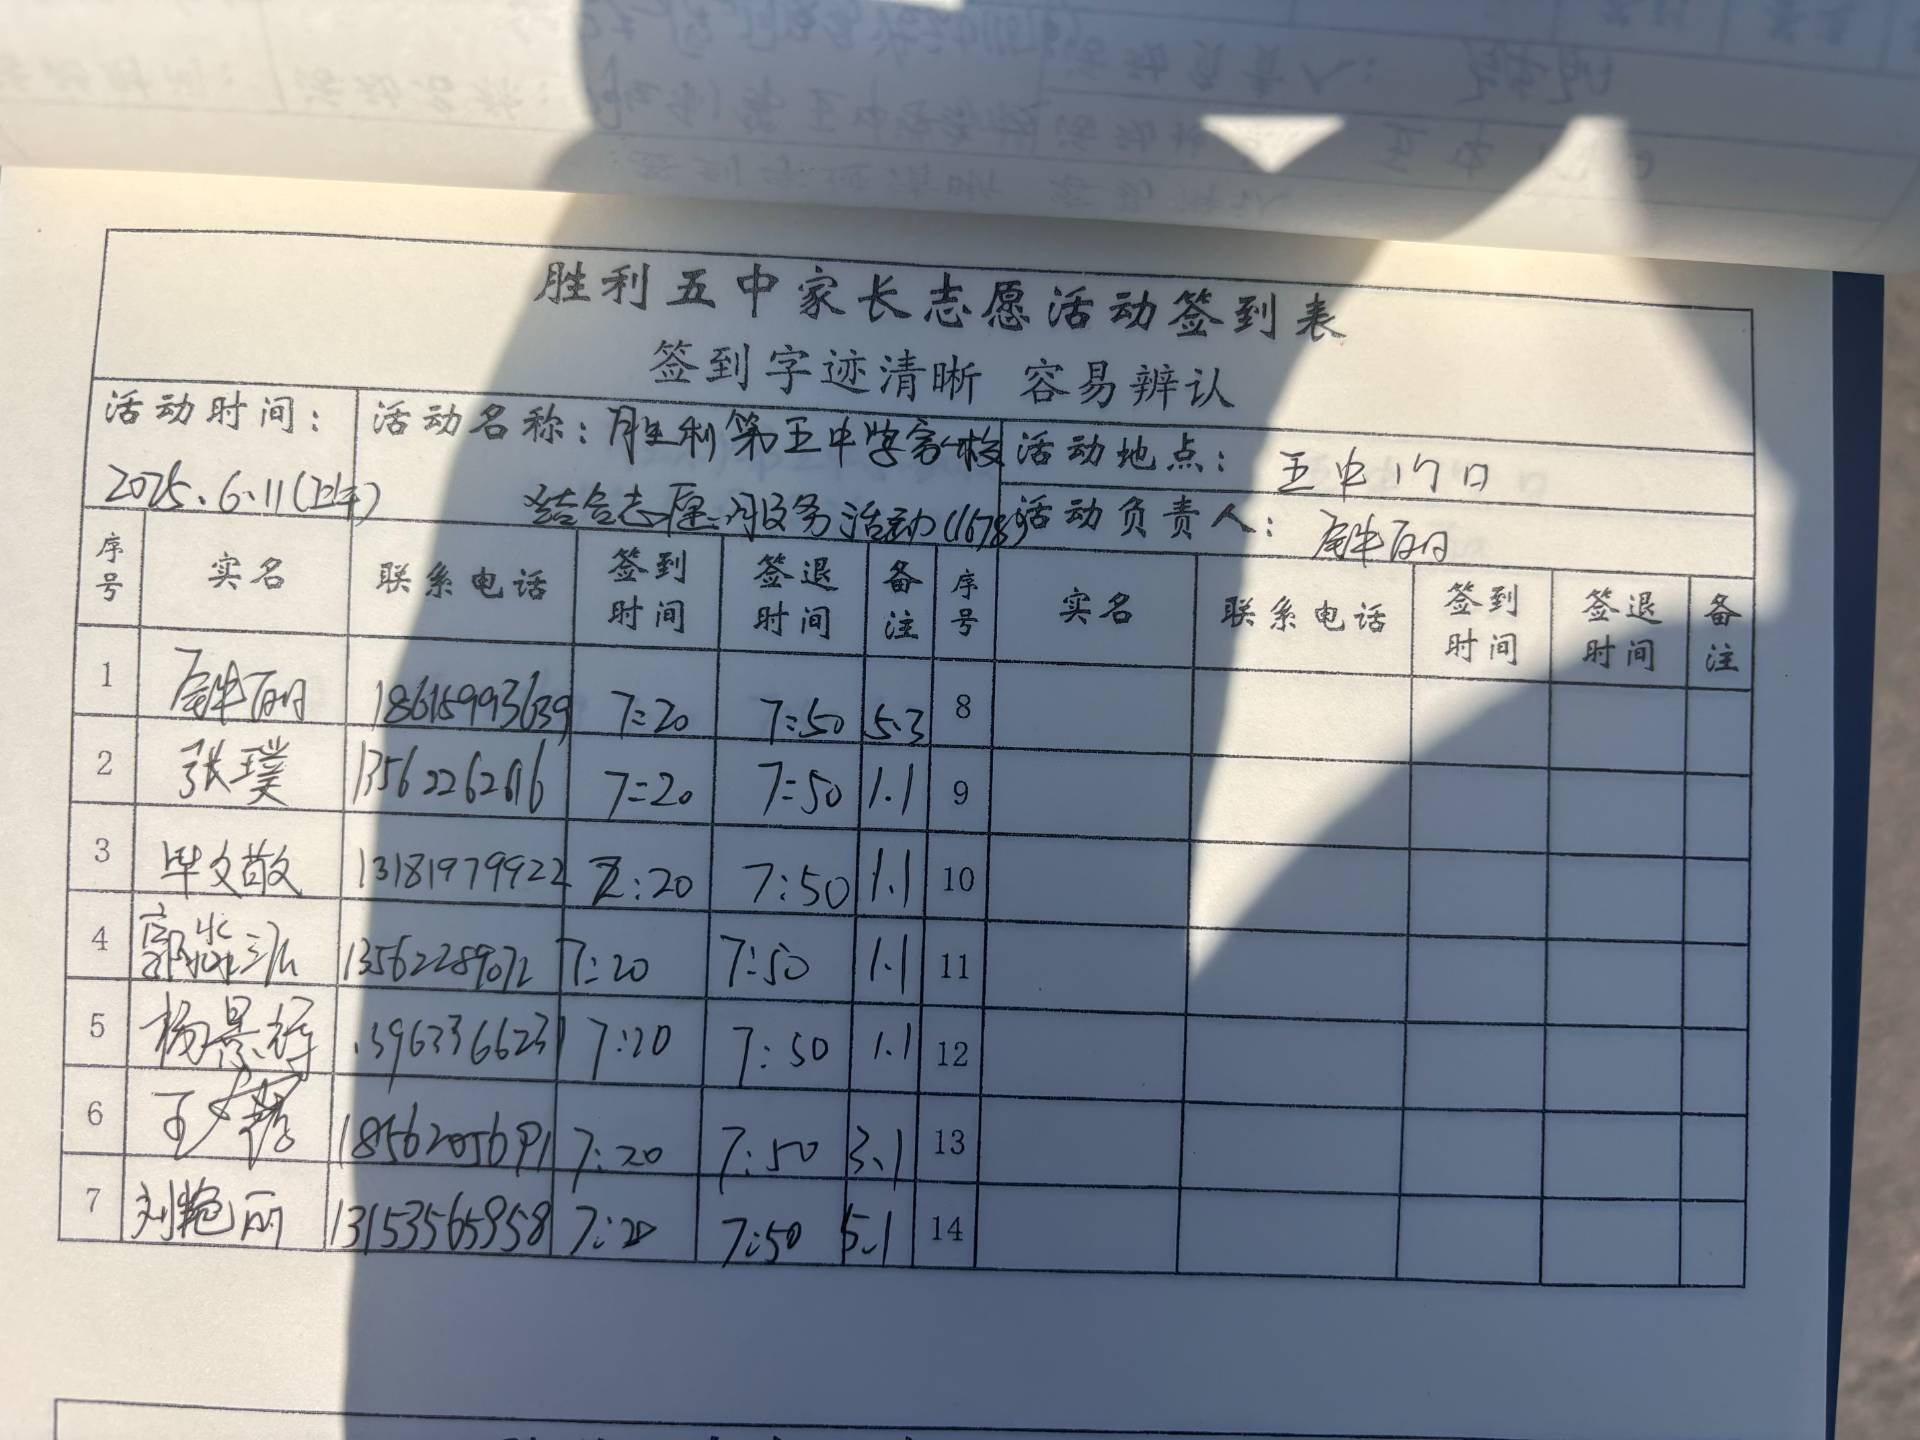 胜利五中家长志愿活动签到表
签到字迹清晰 容易辨认
活动时间：
2025.6.11(上午)
活动名称：胜利第五中学家校
结合志愿服务活动(1678)
活动地点： 五中门口
活动负责人：
序号 实名 联系电话 签到时间 签退时间 备注 序号 实名 联系电话 签到时间 签退时间 备注
1 18615993639 7:20 7:50 5.3 8
2 张璞 7:20 7:50 1.1 9
3 毕文敬 13181979922 7:20 7:50 1.1 10
4 13562289072 7:20 7:50 1.1 11
5 杨景辉 13963366231 7:20 7:50 1.1 12
6 王 18562056891 7:20 7:50 3.1 13
7 刘艳丽 13153565958 7:20 7:50 5.1 14